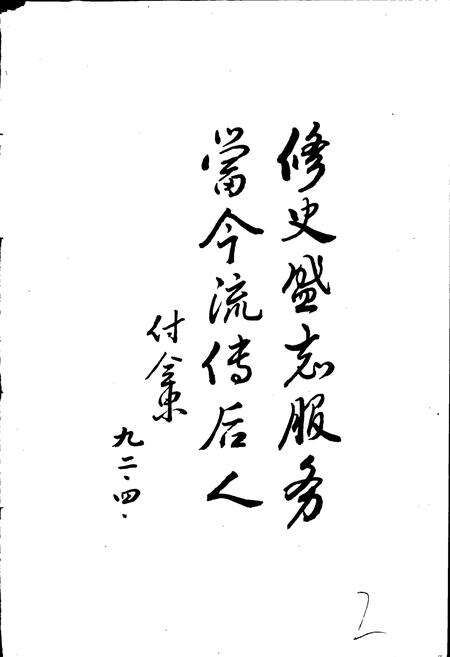 修史盛志服务
當今流传后人
付
九二.四.
2